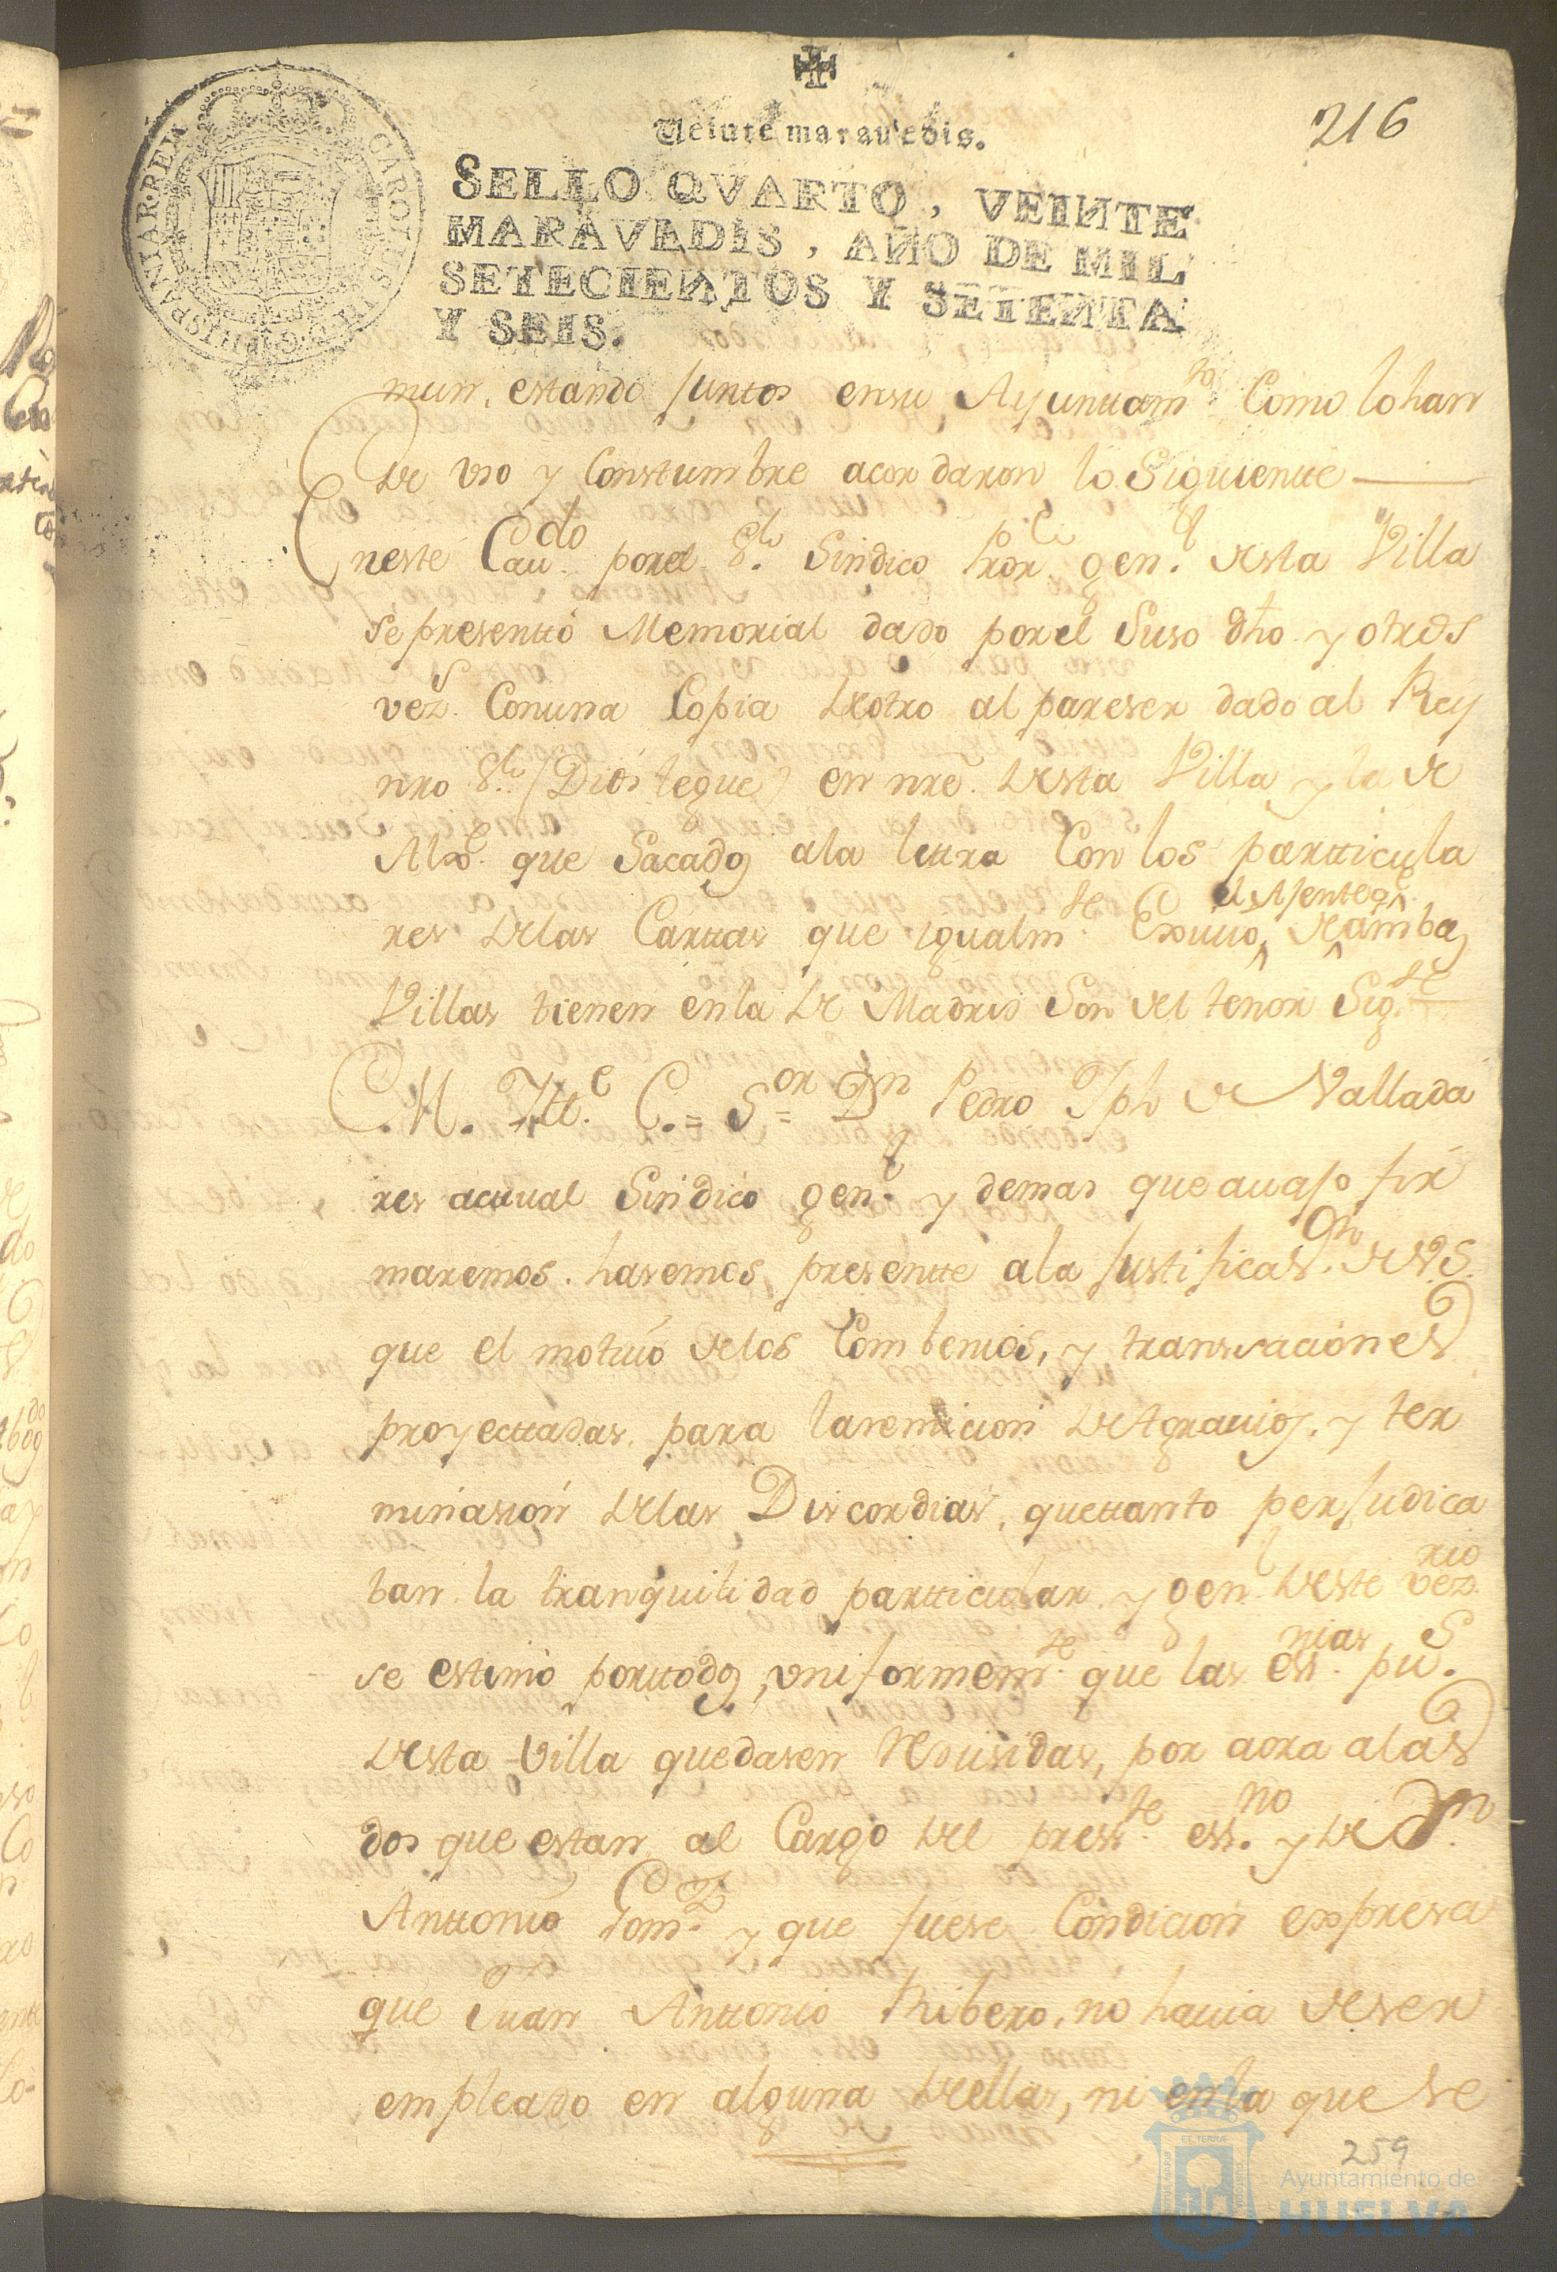 216
Veinte maravedis.
SELLO QVARTO, VEINTE
MARAVEDIS, AÑO DE MIL
SETECIENTOS Y SETENTA
Y SEIS.
CAROLUS III D.G. HISPANIAR. REX
mun, estando Juntos ensu Ayunttamto. Como lo han
de vso y Constumbre acordaron lo Siguientte
Eneste Caudo. porel Sr. Sindico Pror. genl. desta Villa
se presenttó Memorial dado porel Suso dho. y otros
vezs. Conuna Copia deotro al pareser dado al Rey
nro Sr. (Dios le gue) en nre. desta Villa y la de
que Sacados ala lettra Con los particula
res delas Carttas que igualmte. Exiuio, el Ajente q,, de ambas
Villas tienen enla de Madrid Son del tenor Sigte.
C. M. Itte. C. = Sor. = Dn Pedro Jph de Vallada
res acttual Sindico genl. y demas que auajo fir
maremos. hasemos presentte ala Justificasn. de VS.
que el motiuo delos Combenios, y transsaciones
proyecttadas para la remicion de Agrauios, y ter
minasion delas Discordias, quettanto perJudica
ban la tranquilidad partticular y genl. deste vezrio.
se estimó porttodos, vniformemte. que las essnias. pus.
desta Villa quedasen Redusidas, por aora alas
dos que estan al Cargo del presste. essno. y de Dn.
Anttonio Gomz. y que fuese Condicion expresa
que Juan Anttonio Ribero, no hauia de ser
empleado en alguna dellas, ni enla que se
259
Ayuntamiento de
HUELVA